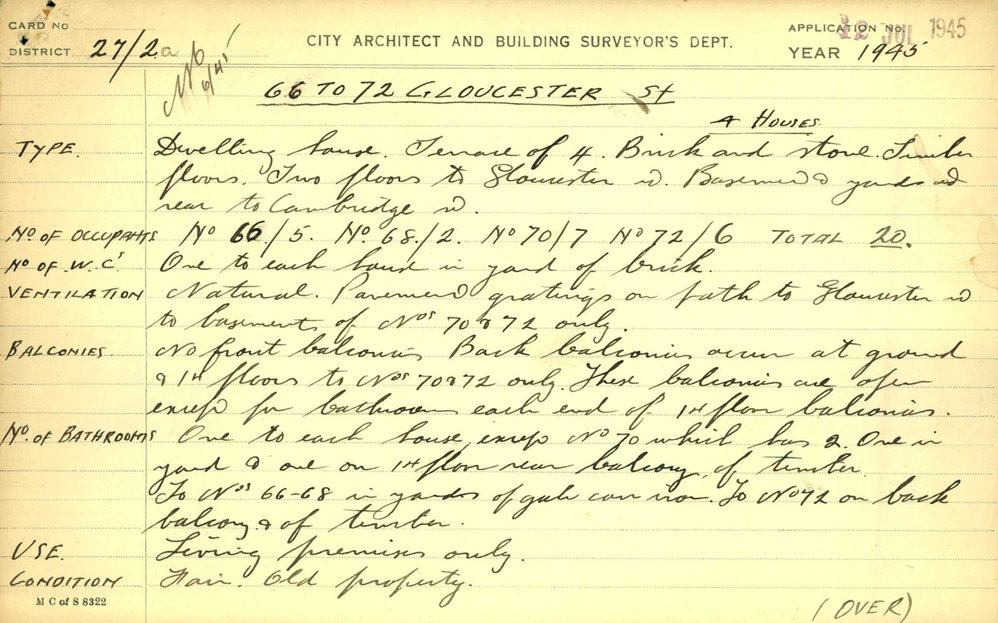 CARD NO
DISTRICT 27/2a
6/45
CITY ARCHITECT AND BUILDING SURVEYOR'S DEPT.
APPLICATION NO.
12 JUL 1945
YEAR 1945
66 TO 72 GLOUCESTER St
4 HOUSES
TYPE. Dwelling house. Terrace of 4. Brick and stone. Timber
floors. Two floors to Gloucester St. Basement & yards at
rear to Cambridge St.
No OF OCCUPANTS No 66/5. No. 68/2. No 70/7 No 72/6 TOTAL 20.
No OF W.C's One to each house in yard of brick.
VENTILATION Natural. Pavement gratings on path to Gloucester St
to basements of Nos 70 & 72 only.
BALCONIES. No front balconies Back balconies occur at ground
& 1st floors to Nos 70 & 72 only. These balconies are open
except for bathrooms each end of 1st floor balconies.
No. OF BATHROOMS One to each house, except No 70 which has 2. One in
yard & one on 1st floor rear balcony of timber.
To Nos 66-68 in yards of galv corr iron. To No 72 on back
balcony & of timber.
USE. Living premises only.
CONDITION Fair. Old property.
M C of S 8322
(OVER)